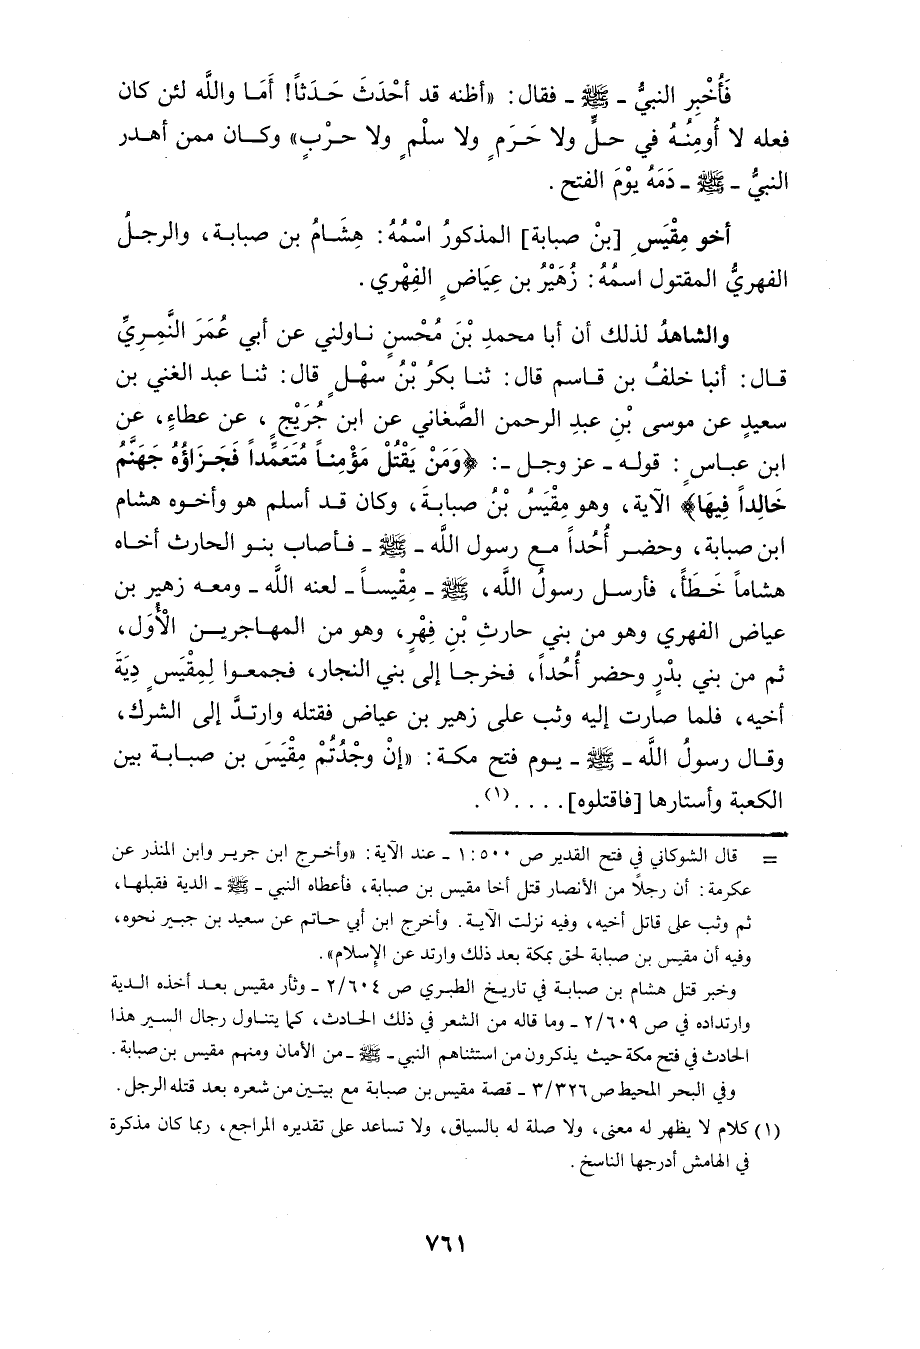 فَأُخْبِر النبيُّ ـ ﷺ ـ فقال: «أظنه قد أحْدَثَ حَدَثاً! أَمَا واللَّه لئن كان
فعله لا أُومِنُـهُ في حـلٍّ ولا حَـرَمٍ ولا سلْمٍ ولا حرْبٍ» وكـان ممن أهـدر
النبيُّ ـ ﷺ ـ دَمَهُ يوْمَ الفتح.
أخو مِقْيَسِ [بنْ صبابة] المذكورُ اسْمُهُ: هِشَـامُ بن صبابـة، والرجـلُ
الفهريُّ المقتول اسمُهُ: زُهَيْرُ بن عِيَاضٍ الفِهْري.
والشاهدُ لذلك أن أبا محمدِ بْنَ مُحْسنٍ نـاولني عن أبي عُمَرَ النَّمِريِّ
قـال: أنبا خلفُ بن قـاسم قال: ثنـا بكرُ بْنُ سهْـلٍ قال: ثنـا عبد الغني بن
سعيدٍ عن موسى بْنِ عبدِ الرحمن الصَّغاني عن ابن جُرَيْجٍ، عن عطاءٍ، عن
ابن عبـاسٍ: قولـه ـ عز وجـل ـ: ﴿وَمَنْ يَقْتُلْ مؤْمِنـاً مُتَعَمِّداً فَجَـزَاؤُهُ جَهَنَّمُ
خَالِداً فِيهَا﴾ الآية، وهو مِقْيَسُ بْنُ صبابـةَ، وكان قـد أسلم هو وأخـوه هشام
ابن صبابة، وحضـر أُحُداً مـع رسول اللَّه ـ ﷺ ـ فـأصاب بنـو الحارث أخـاه
هشاماً خَـطَأً، فأرسـل رسولُ اللَّه، ﷺ ـ مِقْيسـاً ـ لعنه اللَّه ـ ومعـه زهير بن
عياض الفهري وهو من بني حارثِ بْنِ فِهْرٍ، وهو من المهـاجريـن الْأُوَل،
ثم من بني بدْرٍ وحضر أُحُداً، فخرجـا إلى بني النجار، فجمعـوا لِمِقْيَسٍ دِيَةَ
أخيه، فلما صارت إليه وثب على زهير بن عياض فقتله وارتـدَّ إلى الشرك،
وقـال رسولُ اللَّه ـ ﷺ ـ يـوم فتح مكـة: «إنْ وجْدُتُمْ مِقْيَسَ بن صبـابـة بين
الكعبة وأستارها [فاقتلوه]....(١).
= قال الشوكاني في فتح القدير ص ١:٥٠٠ ـ عند الآية: «وأخـرج ابن جرير وابن المنذر عن
عكرمة: أن رجلاً من الأنصار قتل أخا مقيس بن صبابة، فأعطاه النبي ـ ﷺ ـ الدية فقبلهـا،
ثم وثب على قاتل أخيه، وفيه نزلت الآيـة. وأخرج ابن أبي حـاتم عن سعيد بن جبـير نحوه،
وفيه أن مقيس بن صبابة لحق بمكة بعد ذلك وارتد عن الإسلام».
وخبر قتل هشام بن صبابـة في تاريخ الطبري ص ٢/٦٠٤ ـ وثأر مقيس بعـد أخذه الـدية
وارتداده في ص ٢/٦٠٩ ـ وما قاله من الشعر في ذلك الحـادث، كما يتنـاول رجال السـير هذا
الحادث في فتح مكة حيث يذكرون من استثناهم النبي ـ ﷺ ـ من الأمان ومنهم مقيس بن صبابة.
وفي البحر المحيط ص ٣/٣٢٦ ـ قصة مقيس بن صبابة مع بيتـين من شعره بعد قتله الرجل.
(١) كلام لا يظهر له معنى، ولا صلة له بالسياق، ولا تساعد على تقديره المراجع، ربما كان مذكرة
في الهامش أدرجها الناسخ.
٧٦١